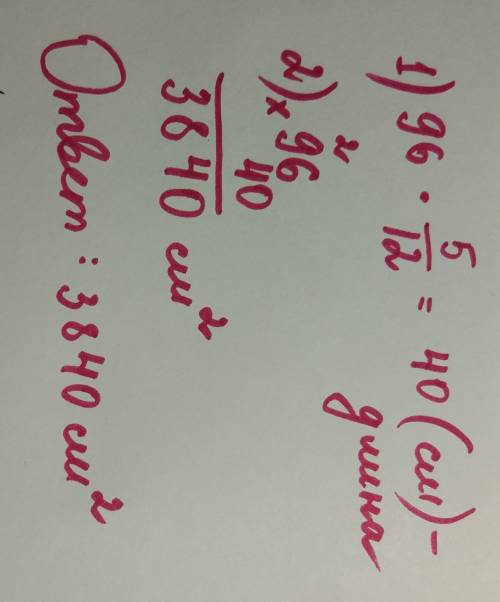 1) 96 · 5/12 = 40 (см) –
длина
2) × 96
2
40
3840 см²
Ответ: 3840 см²